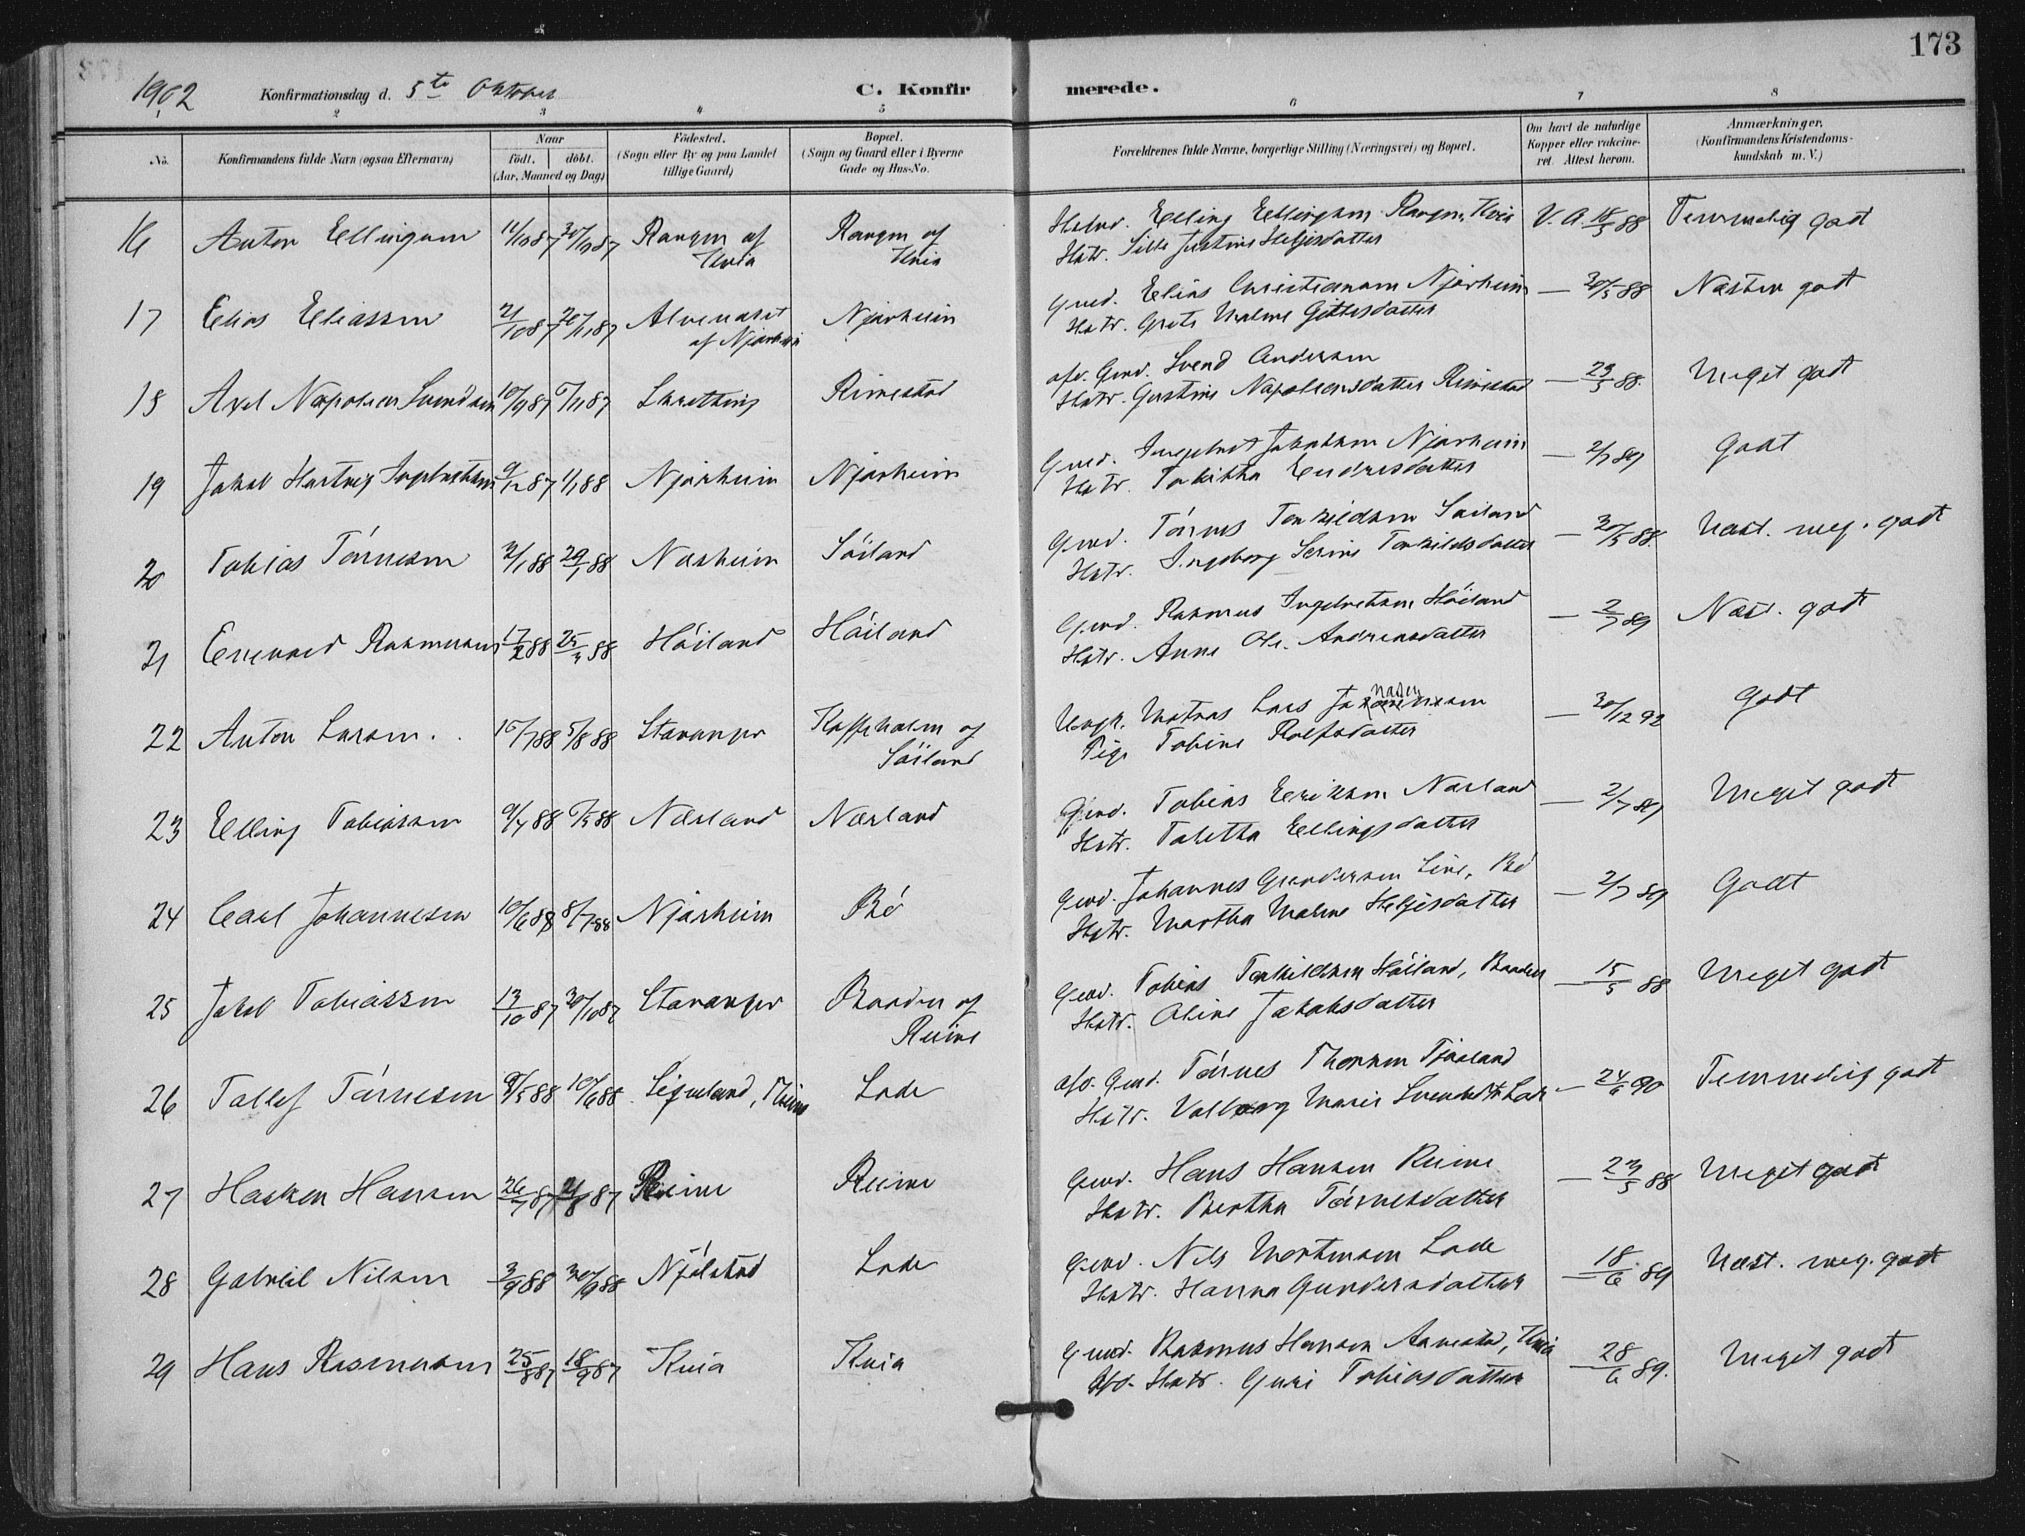 173
1902 Konfirmationsdag d. 5te Oktober C. Konfirmerede.
1 2 3 4 5 6 7 8
No. Konfirmandens fulde Navn (ogsaa Efternavn) Naar født. døbt. (Aar, Maaned og Dag) Fødested. (Sogn eller By og paa Landet tillige Gaard) Bopæl. (Sogn og Gaard eller i Byerne Gade og Hus-No. Forældrenes fulde Navne, borgerlige Stilling (Næringsvei) og Bopæl. Om havt de naturlige Kopper eller vakcineret. Attest herom. Anmærkninger. (Konfirmandens Kristendomskundskab m. V.)
16 Anton Ellingsen 11/10 87 30/10 87 Rangen af Kvia Rangen af Kvia Elling Ellingsen Rangen, Kvia V. A. 18/5 88 Temmelig godt
Hstr. Justine Helgesdatter
17 Elias Eliassen 21/10 87 20/11 87 af Njærheim Njærheim Gmd. Elias Christiansen Njærheim — 30/5 88 Næsten godt
Hstr. Grete Malene Gittesdatter
18 Axel Napoleon Svendsen 10/9 87 6/11 87 Skretting Rimestad Gmd. Svend Andersen — 23/5 88. Meget godt
Hstr. Gustine Napoleonsdatter Rimestad
19 Jakob Hartvig Ingebretsen 9/12 87 1/1 88 Njærheim Njærheim Gmd. Ingebret Jakobsen Njærheim — 2/7 89 Godt
Hstr. Tabitha Endresdatter
20 Tobias Tørresen 2/1 88 29/1 88 Nærheim Søiland Gmd. Tørres Torkildsen Søiland — 30/5 88. Næst. meg. godt
Hstr. Ingeborg Serine Torkildsdatter
21 Enevald Rasmussen 17/2 88 25/3 88 Høiland Høiland Gmd. Rasmus Ingebretsen Høiland — 2/7 89 Næst. godt
Hstr. Anne Ol. Andreasdatter
22 Anton Larsen. 15/7 88 5/8 88 Stavanger Kaffeholen af Søiland Ungk. Matros Lars — 30/12 92 Godt
Pige Tobine Rolfsdatter
23 Elling Tobiassen 9/4 88 6/5 88 Nærland Nærland Gmd. Tobias Eriksen Nærland — 2/7 89 Meget godt
Hstr. Tabetha Ellingsdatter
24 Carl Johannesen 10/6 88 8/7 88 Njærheim Bø Gmd. Johannes Gundersen Line, Bø — 2/7 89 Godt
Hstr. Martha Malene Helgesdatter
25 Jakob Tobiassen 13/10 87 30/10 87 Stavanger Braaden af Reime Gmd. Tobias Torkildsen Høiland, Braaden — 15/5 88 Meget godt
Hstr. Oline Jakobsdatter
26 Tollef Tørresen 9/5 88 10/6 88 Lode afd. Gmd. Tørres Thorsen Tjaaland — 24/6 90 Temmelig godt
Hstr. Valborg Marie Svendsdtr. Lode
27 Haaken Hansen 26/7 87 21/8 87 Reime Reime Gmd. Hans Hansen Reime — 23/5 88 Meget godt
Hstr. Bertha Tørresdatter
28 Gabriel Nilsen 3/9 88 30/9 88 Njølstad Lode Gmd. Nils Mortensen Lode — 18/6 89 Næst. meg. godt
Hstr. Hanna Gundersdatter
29 Hans Rasmussen 25/8 87 18/9 87 Kvia Kvia Gmd. Rasmus Hansen Aarestad, Kvia — 28/6 89. Meget godt
Afd. Hstr. Guri Tobiasdatter